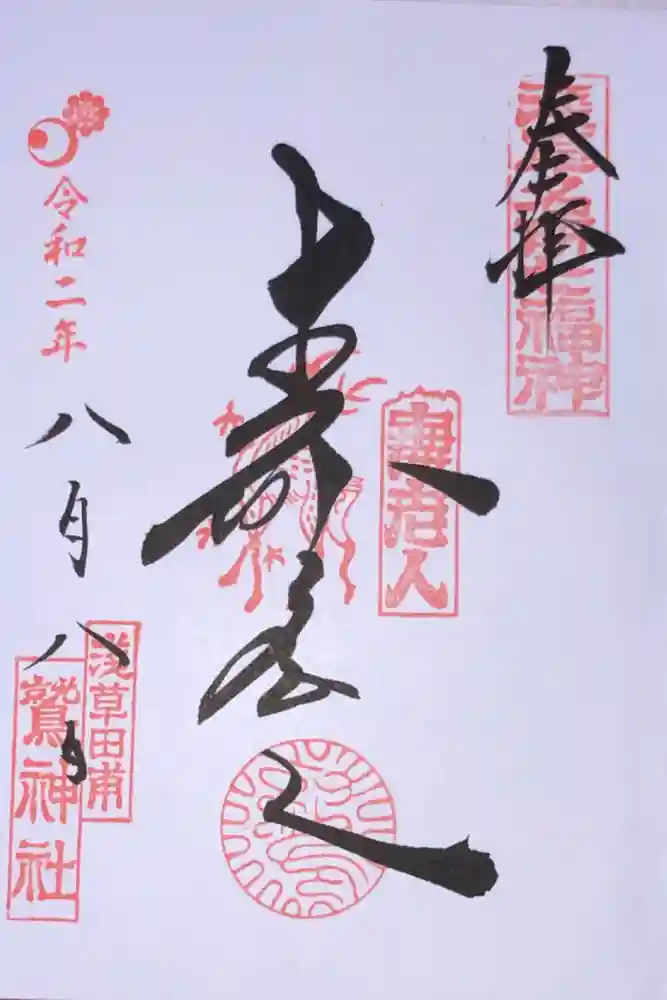 奉拝
福神
寿老人
寿老人
令和二年
八月八日
浅草田甫
鷲神社